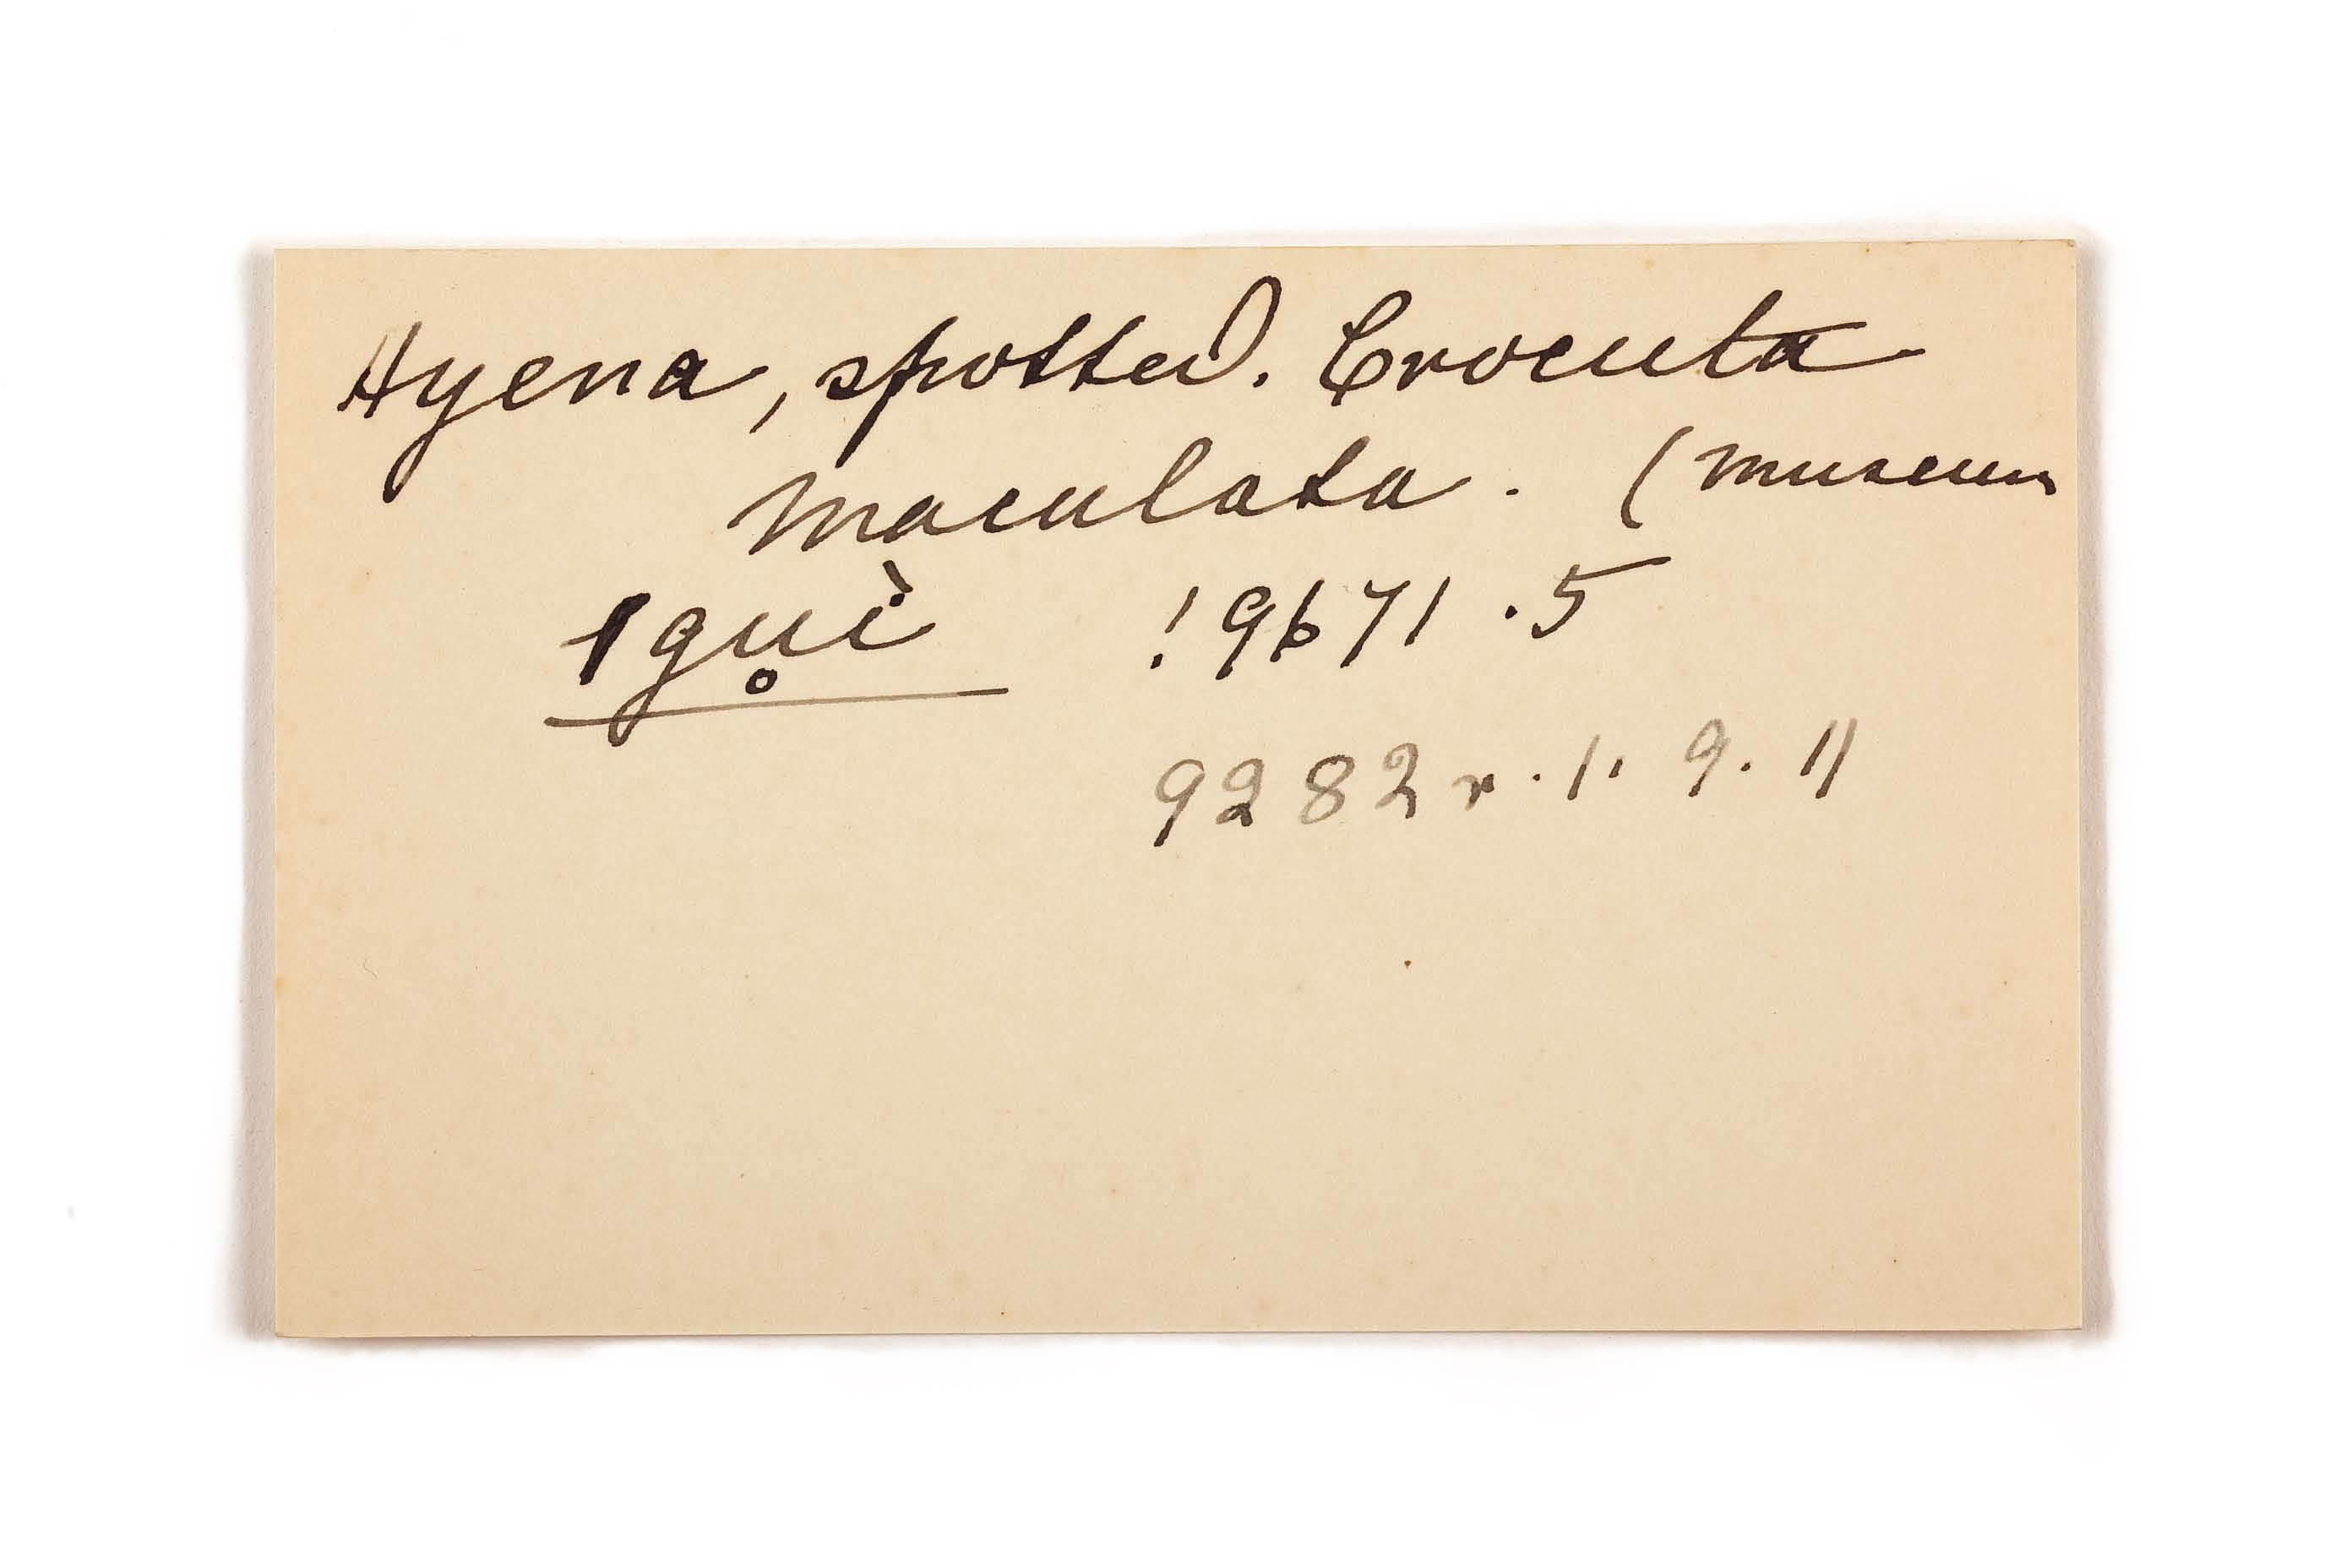 Hyena, spotted. Crocuta
maculata. (museum
ƚgu̥ì !9671.5
9282r.1. 9. 11